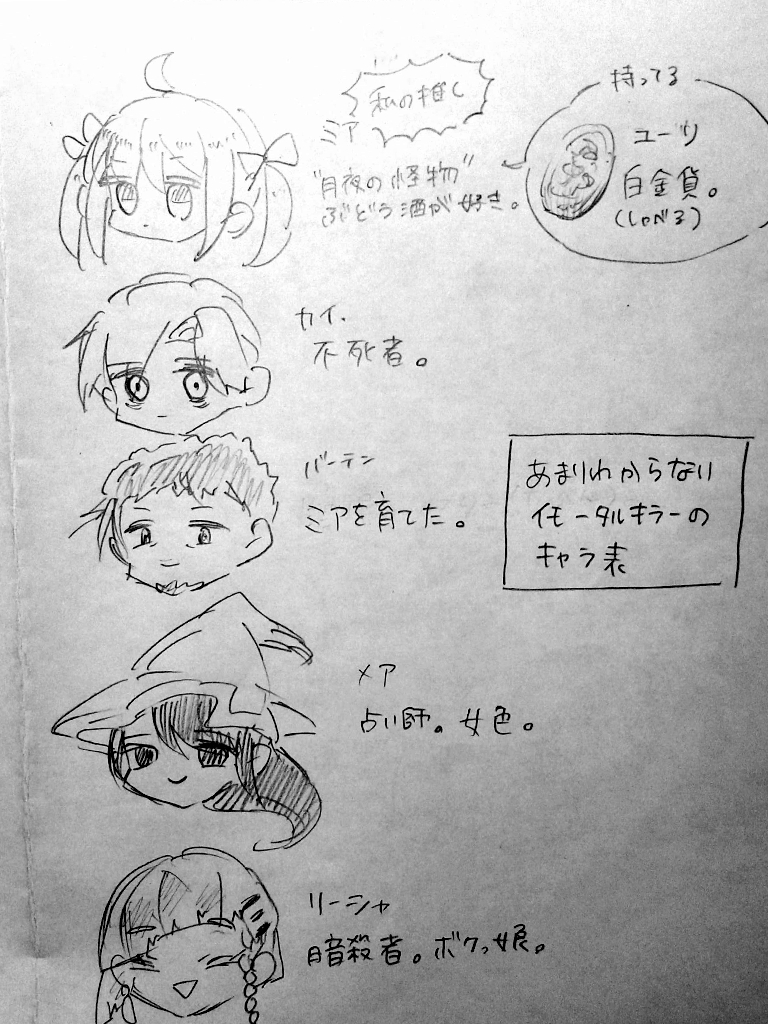 私の推し
ミア
"月夜の怪物"
ぶどう酒が好き。
持ってる
ユーツ
白金貨。
(しゃべる)
カイ.
不死者。
バーテン
ミアを育てた。
あまりわからない
イモータルキラーの
キャラ表
メア
占い師。女色。
リーシャ
暗殺者。ボクっ娘。